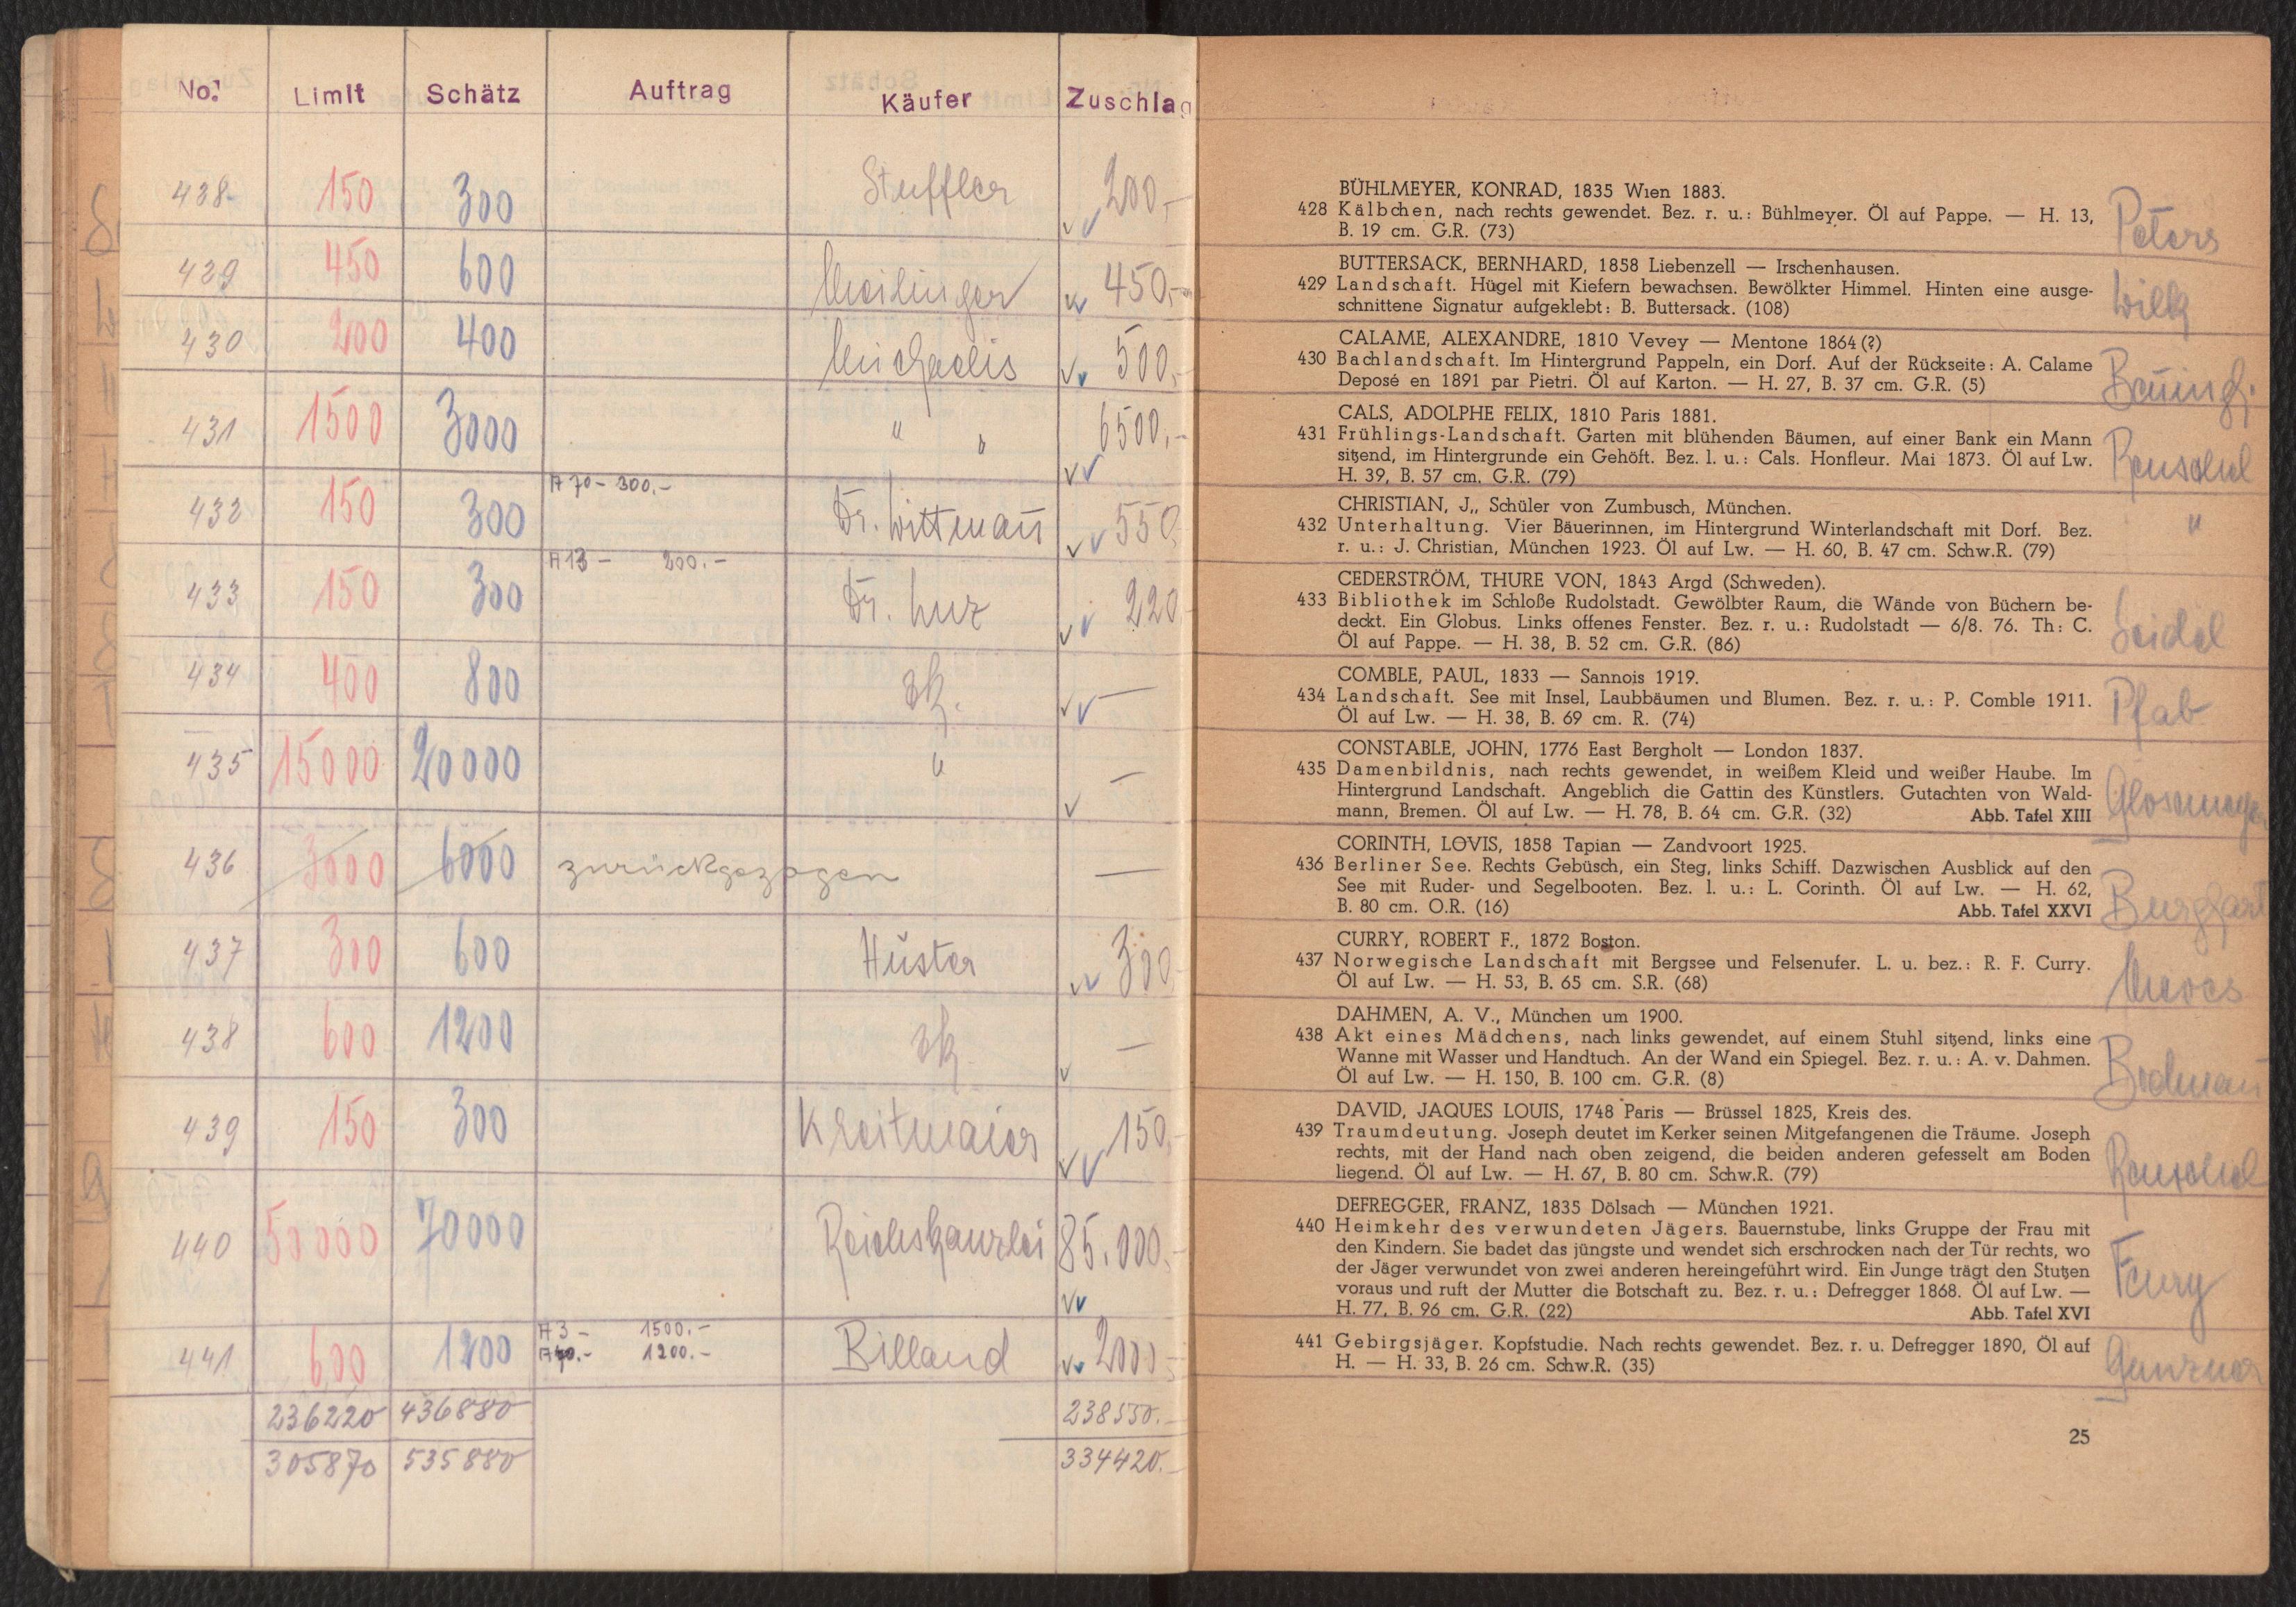 No. Limit Schätz Auftrag Käufer Zuschlag
428 150 300 Stuffler 200,-
429 450 600 Meilinger 450,-
430 200 400 Michaelis 500,-
431 1500 3000 " " 6500,-
432 150 300 A 70 - 300.- Dr. Wittmann 550,
433 150 300 A 13 - 200.- Dr. Luz 220
434 400 800 zk. —
435 15000 20000 " —
436 3000 6000 zurückgezogen —
437 300 600 Huster 300
438 600 1200 zk —
439 150 300 Kreitmaier 150,-
440 50000 70000 Reichskanzlei 85.000.-
441 600 1200 A 3 - 1500.- Billand 2000,-
1200.-
236220 436880 238550.-
305870 535880 334420.-
BÜHLMEYER, KONRAD, 1835 Wien 1883.
428 Kälbchen, nach rechts gewendet. Bez. r. u.: Bühlmeyer. Öl auf Pappe. — H. 13,
B. 19 cm. G.R. (73)
Peters
BUTTERSACK, BERNHARD, 1858 Liebenzell — Irschenhausen.
429 Landschaft. Hügel mit Kiefern bewachsen. Bewölkter Himmel. Hinten eine ausge-
schnittene Signatur aufgeklebt: B. Buttersack. (108)
CALAME, ALEXANDRE, 1810 Vevey — Mentone 1864 (?)
430 Bachlandschaft. Im Hintergrund Pappeln, ein Dorf. Auf der Rückseite: A. Calame
Deposé en 1891 par Pietri. Öl auf Karton. — H. 27, B. 37 cm. G.R. (5)
CALS, ADOLPHE FELIX, 1810 Paris 1881.
431 Frühlings-Landschaft. Garten mit blühenden Bäumen, auf einer Bank ein Mann
sitzend, im Hintergrunde ein Gehöft. Bez. l. u.: Cals. Honfleur. Mai 1873. Öl auf Lw.
H. 39, B. 57 cm. G.R. (79)
CHRISTIAN, J,, Schüler von Zumbusch, München.
432 Unterhaltung. Vier Bäuerinnen, im Hintergrund Winterlandschaft mit Dorf. Bez.
r. u.: J. Christian, München 1923. Öl auf Lw. — H. 60, B. 47 cm. Schw.R. (79)
"
CEDERSTRÖM, THURE VON, 1843 Argd (Schweden).
433 Bibliothek im Schloße Rudolstadt. Gewölbter Raum, die Wände von Büchern be-
deckt. Ein Globus. Links offenes Fenster. Bez. r. u.: Rudolstadt — 6/8. 76. Th: C.
Öl auf Pappe. — H. 38, B. 52 cm. G.R. (86)
Seidel
COMBLE, PAUL, 1833 — Sannois 1919.
434 Landschaft. See mit Insel, Laubbäumen und Blumen. Bez. r. u.: P. Comble 1911.
Öl auf Lw. — H. 38, B. 69 cm. R. (74)
Pfab
CONSTABLE, JOHN, 1776 East Bergholt — London 1837.
435 Damenbildnis, nach rechts gewendet, in weißem Kleid und weißer Haube. Im
Hintergrund Landschaft. Angeblich die Gattin des Künstlers. Gutachten von Wald-
mann, Bremen. Öl auf Lw. — H. 78, B. 64 cm. G.R. (32) Abb. Tafel XIII
CORINTH, LOVIS, 1858 Tapian — Zandvoort 1925.
436 Berliner See. Rechts Gebüsch, ein Steg, links Schiff. Dazwischen Ausblick auf den
See mit Ruder- und Segelbooten. Bez. l. u.: L. Corinth. Öl auf Lw. — H. 62,
B. 80 cm. O.R. (16) Abb. Tafel XXVI
CURRY, ROBERT F., 1872 Boston.
437 Norwegische Landschaft mit Bergsee und Felsenufer. L. u. bez.: R. F. Curry.
Öl auf Lw. — H. 53, B. 65 cm. S.R. (68)
DAHMEN, A. V., München um 1900.
438 Akt eines Mädchens, nach links gewendet, auf einem Stuhl sitzend, links eine
Wanne mit Wasser und Handtuch. An der Wand ein Spiegel. Bez. r. u.: A. v. Dahmen.
Öl auf Lw. — H. 150, B. 100 cm. G.R. (8)
DAVID, JAQUES LOUIS, 1748 Paris — Brüssel 1825, Kreis des.
439 Traumdeutung. Joseph deutet im Kerker seinen Mitgefangenen die Träume. Joseph
rechts, mit der Hand nach oben zeigend, die beiden anderen gefesselt am Boden
liegend. Öl auf Lw. — H. 67, B. 80 cm. Schw.R. (79)
DEFREGGER, FRANZ, 1835 Dölsach — München 1921.
440 Heimkehr des verwundeten Jägers. Bauernstube, links Gruppe der Frau mit
den Kindern. Sie badet das jüngste und wendet sich erschrocken nach der Tür rechts, wo
der Jäger verwundet von zwei anderen hereingeführt wird. Ein Junge trägt den Stutzen
voraus und ruft der Mutter die Botschaft zu. Bez. r. u.: Defregger 1868. Öl auf Lw. —
H. 77, B. 96 cm. G.R. (22) Abb. Tafel XVI
441 Gebirgsjäger. Kopfstudie. Nach rechts gewendet. Bez. r. u. Defregger 1890, Öl auf
H. — H. 33, B. 26 cm. Schw.R. (35)
25